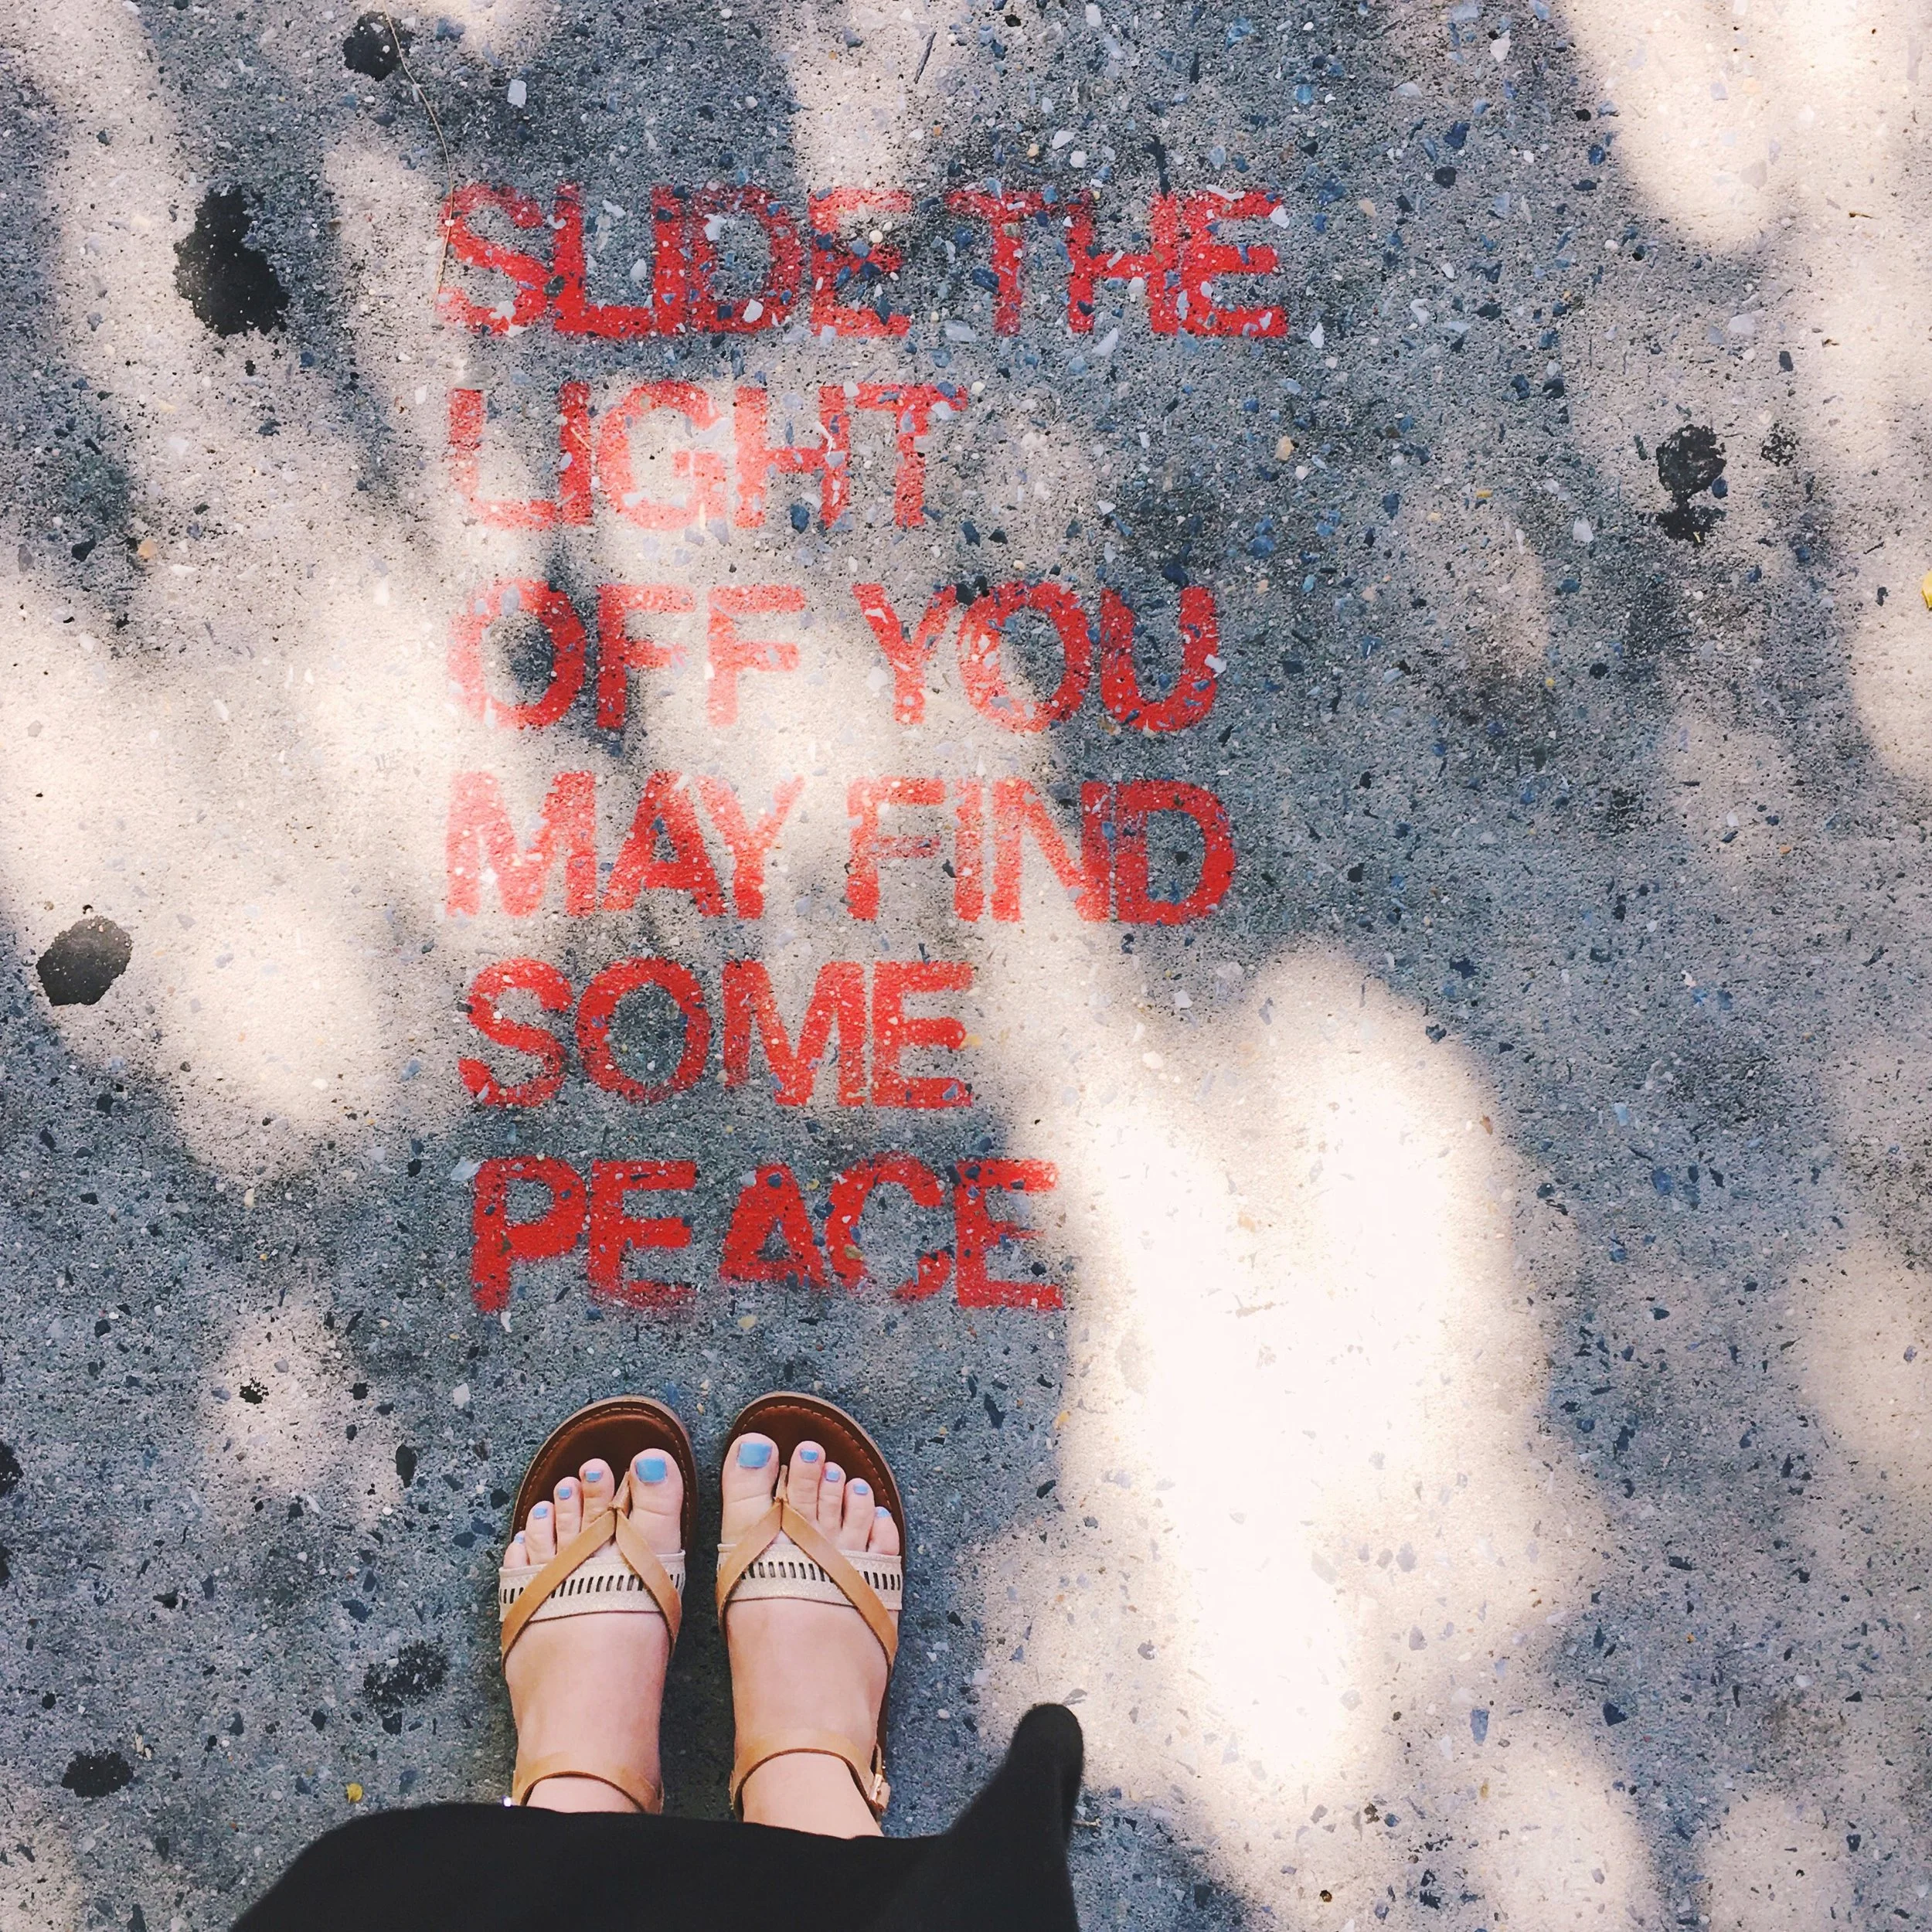 SLIDE THE
LIGHT
OFF YOU
MAY FIND
SOME
PEACE